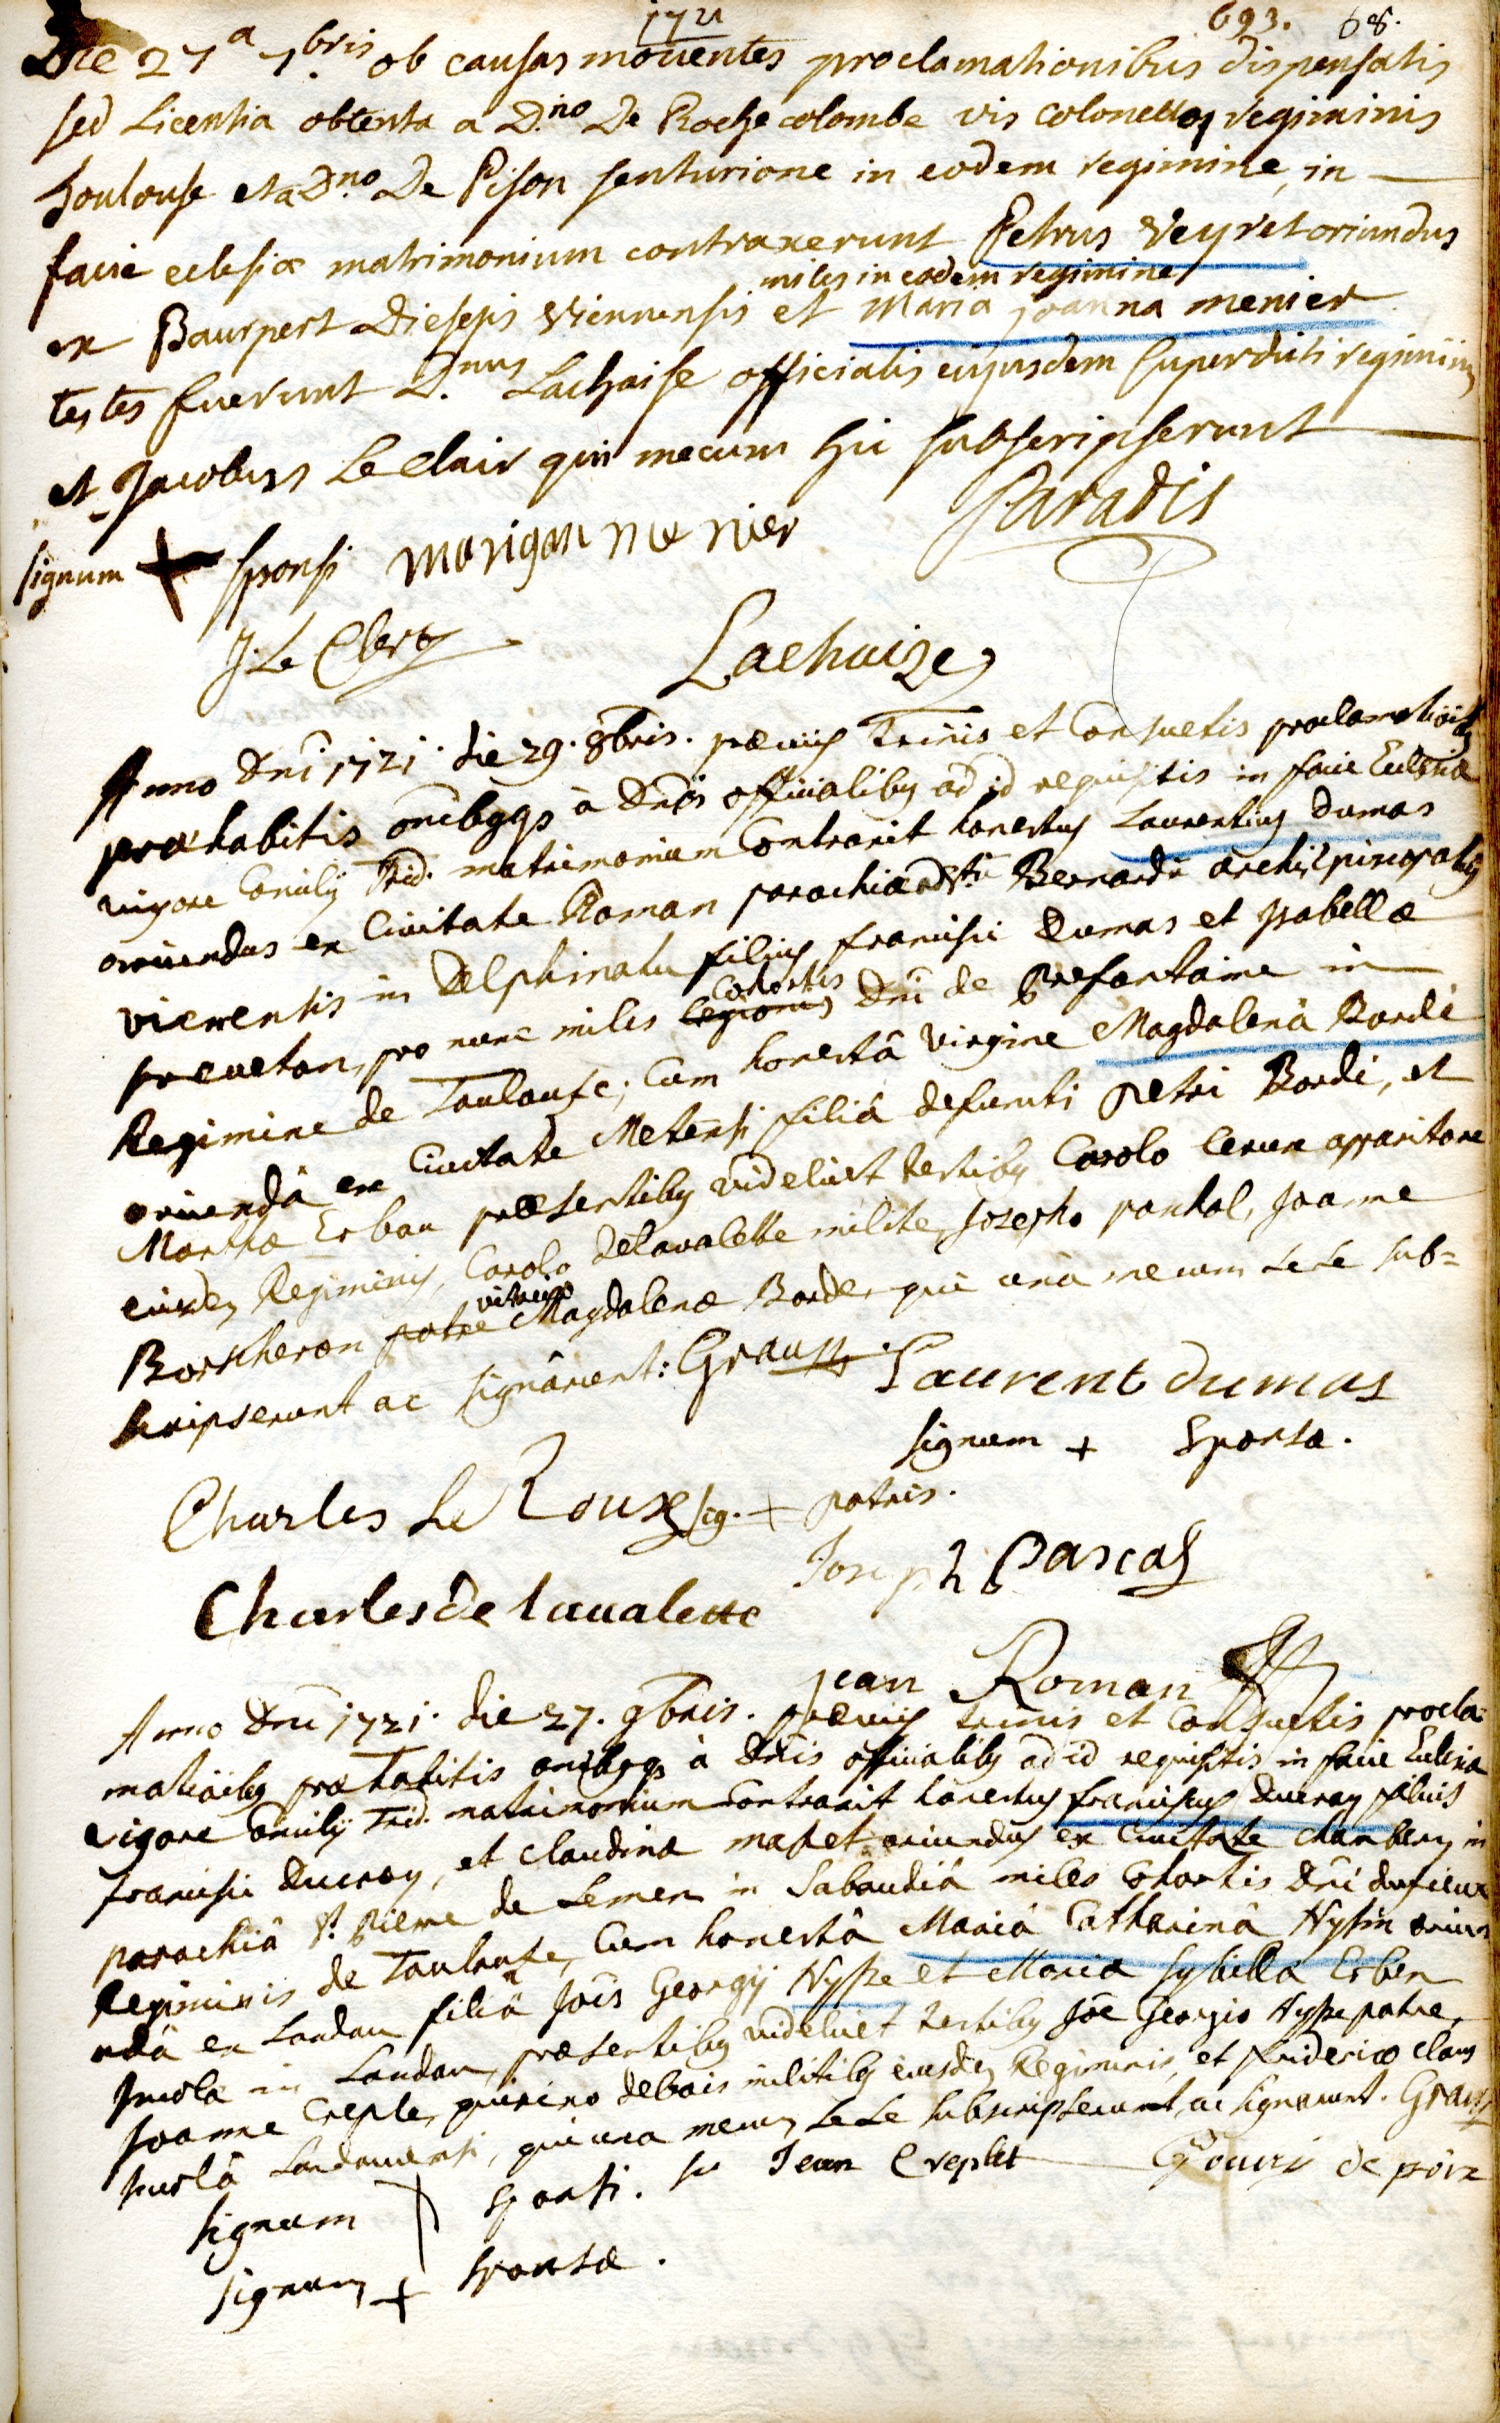 1721 693. 68.
Die 27a 7.bris ob causas mouentes proclamationibus dispensatis
sed Licentia obtenta a D.no De Rochecolombe vis colonellos regiminis
Toulouse et a D.no De Pison senturione in eodem regimine in
facie eclesiæ matrimonium contraxerunt Petrus Veyret oriundus
miles in eodem regimine
ex Baurpert Diesesis Viennensis et Maria joanna menier
testes fuerunt D.nus Lachaise officialis eiyusdem superdicti regiminis
et Jacobus Le clair qui mecum hic subscripserunt
Paradis
signum + sponsi marigan me nier
J. Le Clerc Lachaize
Anno Dni 1721. die 29. 8bris. præuiis trinis et Consuetis proclamationib
præhabitis omibqqs à Dnis officialibus ad id requisitis in facie Eclesiæ
uigore Concilij Trid. matrimonium Contraxit honestus Laurentius dumas
oriundus ex Ciuitate Roman parochiâ Sti Bernardi archiepiscopatus
vienensis in Delphinatu filius francisci Dumas et ysabellæ
cohortis
preueton, pro nunc miles legionis Dni de Prefontaine in
Regimine de Toulouse; Cum honestâ virgine Magdalenâ Bordé
oriundâ ex Ciuitate Metensi filiâ defuncti petri Bordé, et
Marthæ Erban præsentibus videlicet testibus Carolo leroux apparitore
eiusdem Regiminis, Carolo delaualette milite, Josepho paskal, Joanne
vitrico
Borscheron patre Magdalenæ Borde, qui unà mecum sese sub=
scripserunt ac signârunt: Grauss
Laurent dumas
signum + Sponsæ.
Charles Le Roux sig. + patris.
Joseph Pascal
Charles de laualette
jean Roman
Anno Dni 1721. die 27. 9bris. præuiis trinis et Consuetis procla=
matioibus præhabitis omibqqs à Dnis officialibus ad id requisitis in facie Eclesiæ
vigore Concilij Trid. matrimonium Contraxit honestus franciscus Ducray filius
francisci Ducray, et claudina mapet oriundus ex Ciuitate chambery in
parochiâ St. pierre de Lemen in Sabaudiâ miles Cohortis Dni dufieux
Regiminis de Toulouse, Cum honestâ Mariâ Catharinâ Hysin oriun
ndâ ex Landau filiâ Jois Georgij Hysse et Maria sybilla Erben
Incola in Landau, præsentibus videlicet testibus Joe Georgio Hysse patre,
Joanne Creple, quirino debois militibus eiusdem Regiminis, et friderico claus
Incolâ Landauensi, qui una mecum sese subscripserunt, ac signarunt. Grauss
signum sponsi. Jean Creplet de poix
signum + sponsæ.